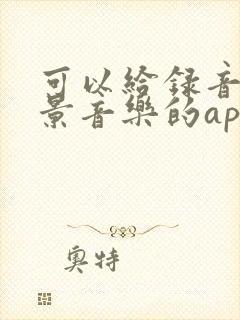 可以給録音
景音樂的ap
奧特